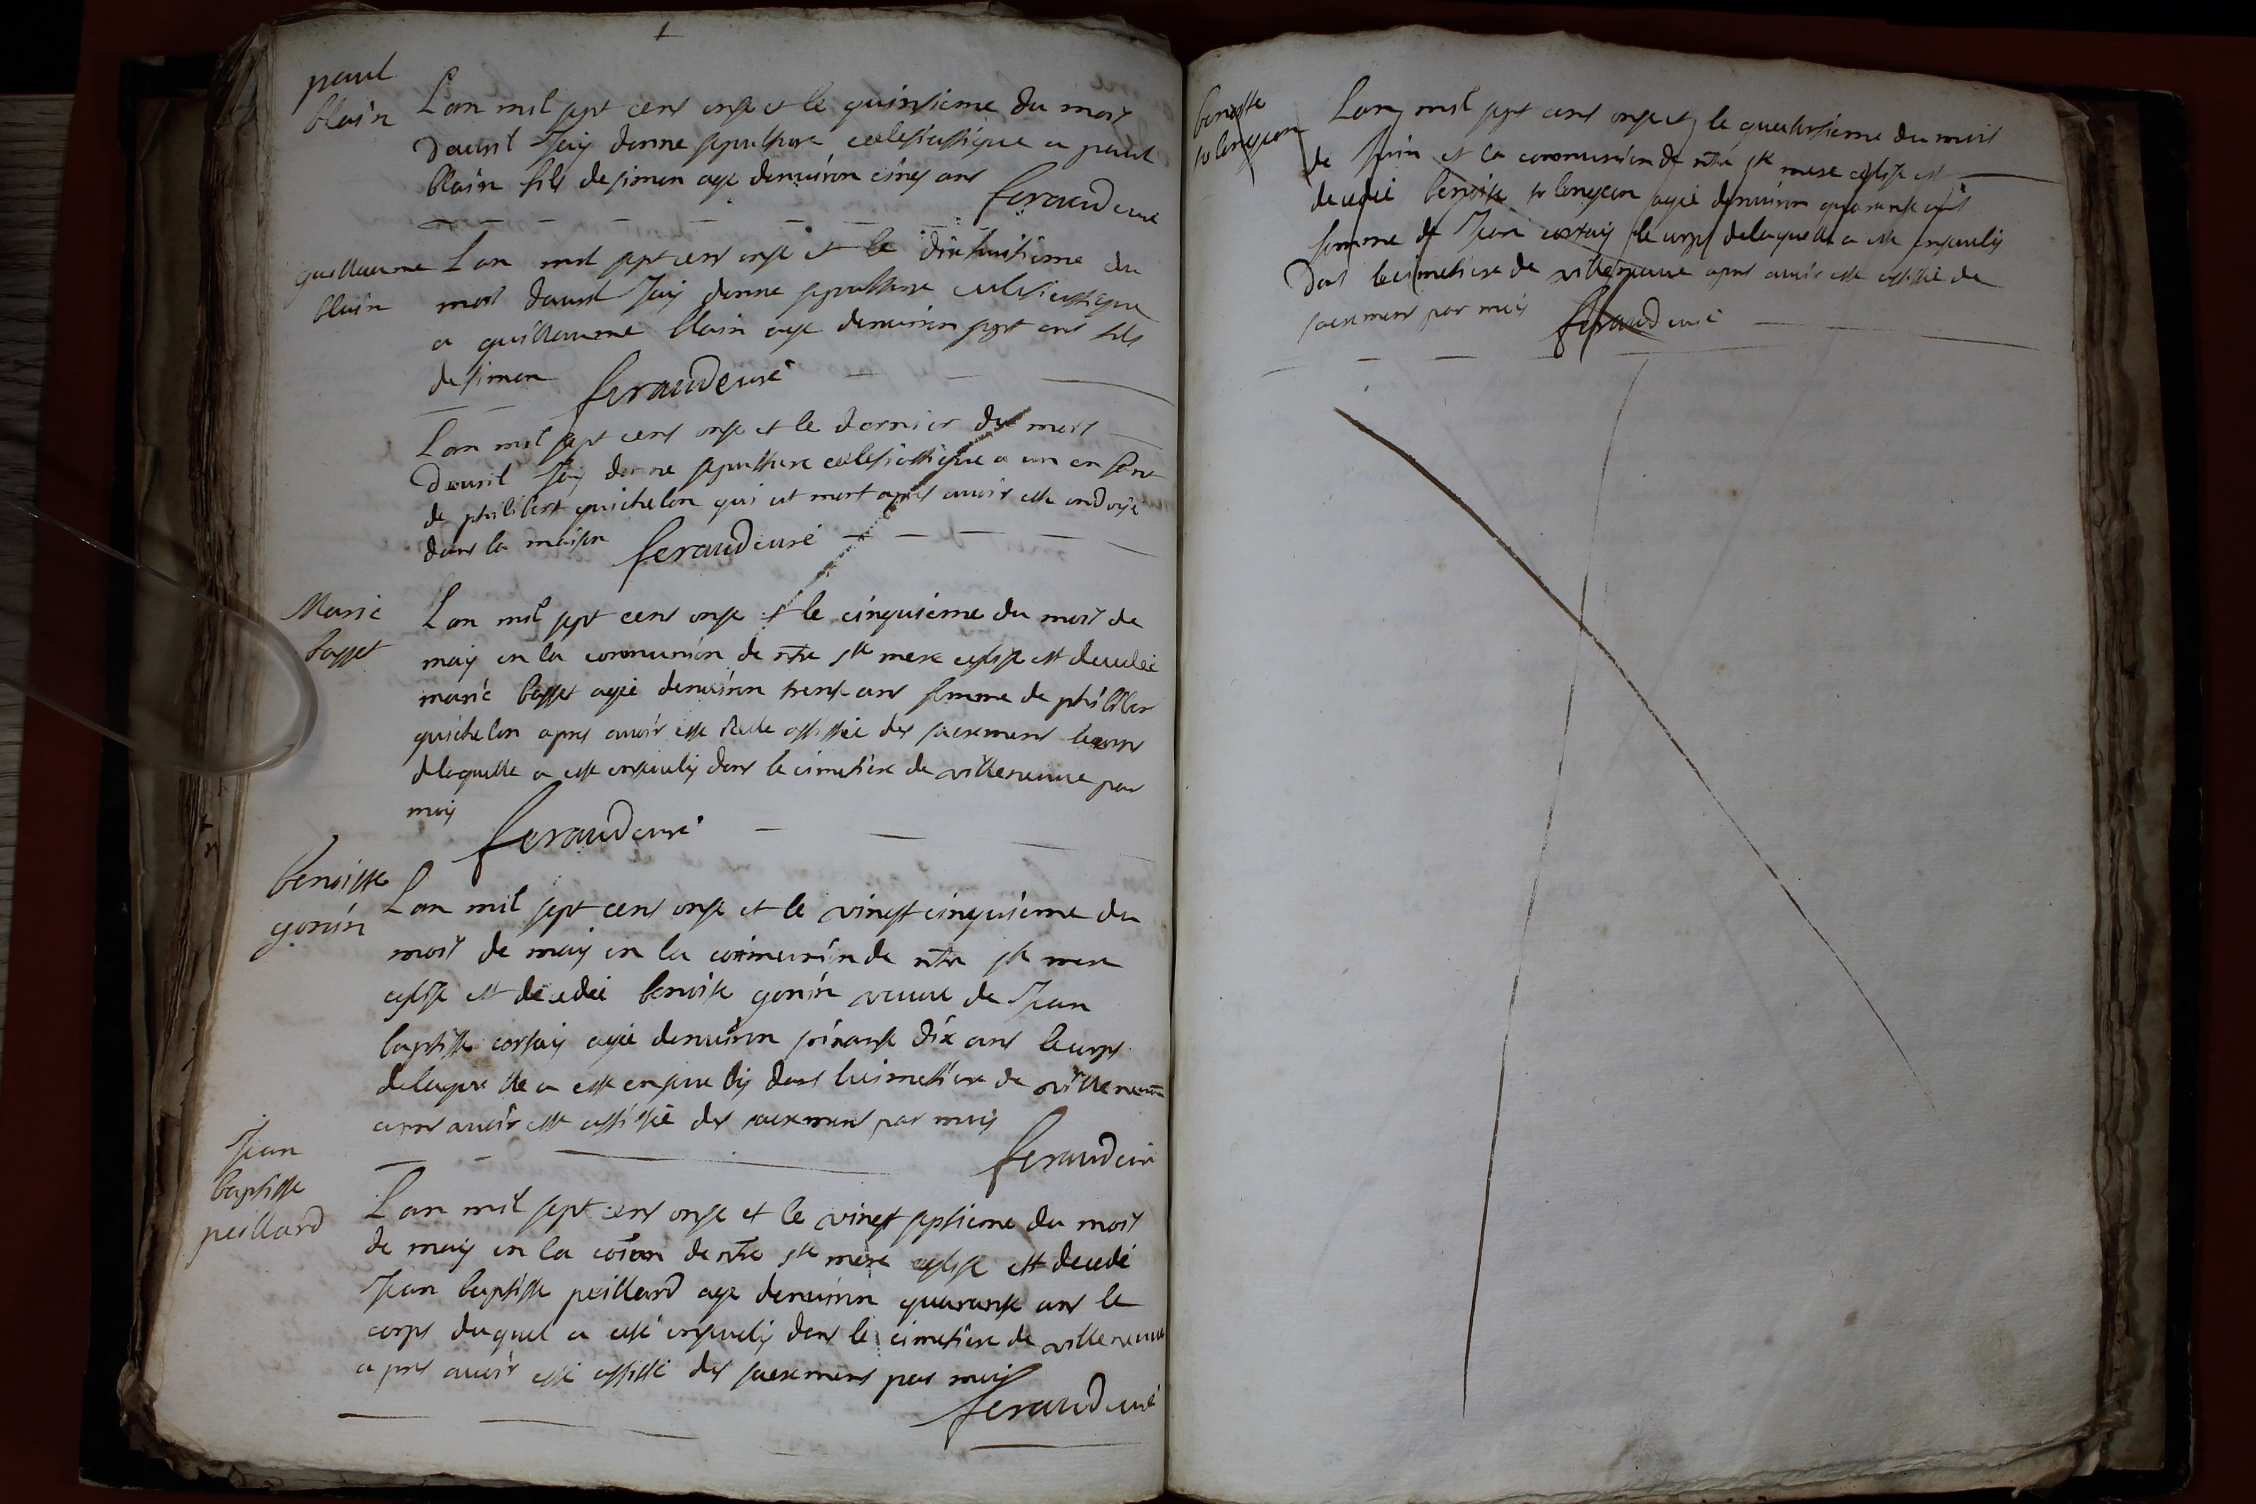 paul
blain
Lan mil sept cens onze et le quinsieme du mois
davril Jay donne sepulture eclesiastique a paul
blain fils de simon age denviron cinq ans
feraud curé
guillaume
blain
Lan mil sept cens onze et le dixhuitieme du
mois davril Jay donne sepulture eclesiastique
a guillaume blain age denviron sept ans fils
de simon feraud curé
Lan mil sept cens onze et le dernier du mois
davril Jay donne sepulture eclesiastique a un enfant
de philibert guichelon qui est mort apres avoir esté ondoyé
dans la maison feraud curé
Marie
basset
Lan mil sept cens onze et le cinquieme du mois de
may en la communion de ntre ste mere eglise est decedée
marie basset agée denviron trente ans femme de philiber
guichelon apres avoir esté assistée des sacremens le corps
de laquelle a esté ensevely dans le cimetiere de villeneuve par
moy feraud curé
benoiste
gonin
Lan mil sept cens onze et le vingt cinquieme du
mois de may en la communion de ntre ste mere
eglise est decedée benoiste gonin veuve de Jean
baptiste corsay agée denviron soixante dix ans le corps
de laquelle a esté ensevely dans le cimetiere de villeneuve
apres avoir esté assistée des sacremens par moy
feraud curé
Jean
baptiste
peillard
Lan mil sept cens onze et le vingt septieme du mois
de may en la coion de ntre ste mere eglise est decedé
Jean baptiste peillard age denviron quarante ans le
corps duquel a esté ensevely dans le cimetiere de villeneuve
apres avoir esté assisté des sacremens par moy
feraud curé
benoiste
Lan mil sept cens onze et le quatorsieme du mois
de Juin et la communion de ntre ste mere eglise est
decedée benoiste agée denviron quarante ans
femme de Jean corsay le corps de laquelle a esté ensevely
dans le cimetiere de villeneuve apres avoir esté assistée de
sacremens par moy feraud curé